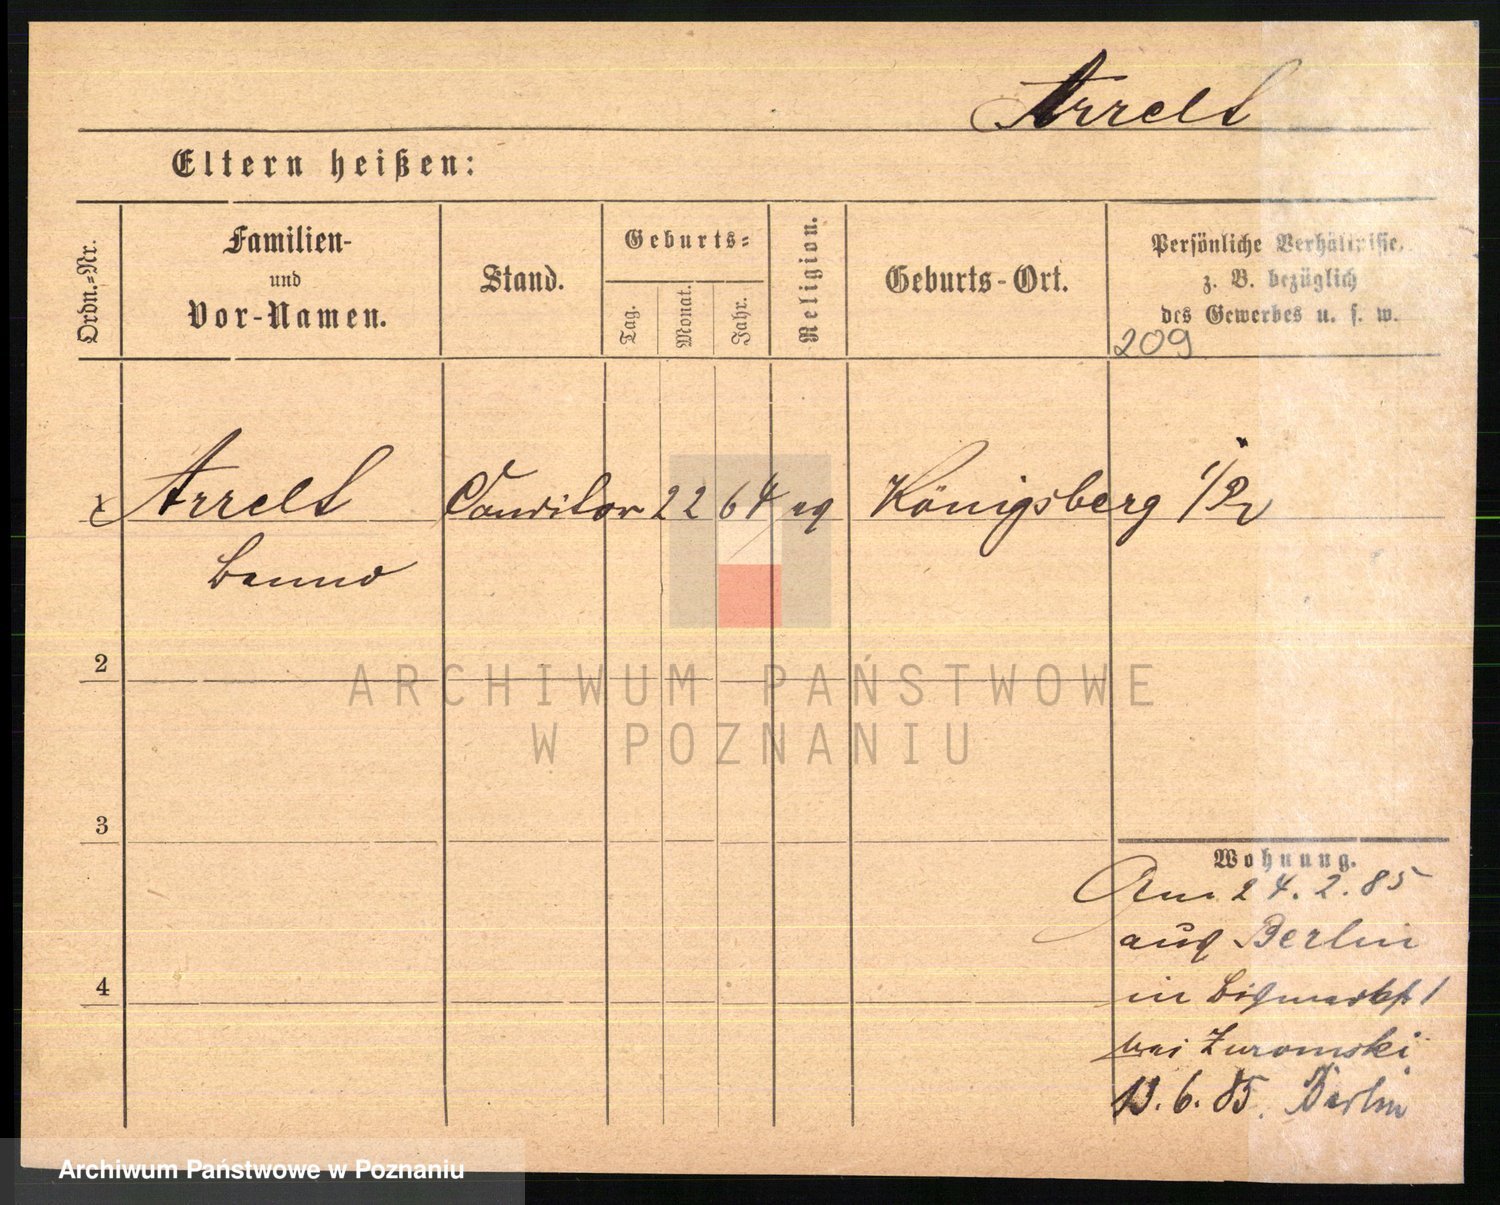 Arrelt
Eltern heißen:
Ordn.-Nr.
Familien-
und
Vor-Namen.
Stand.
Geburts-
Tag.
Monat.
Jahr.
Religion.
Geburts-Ort.
Persönliche Verhältnisse,
z. B. bezüglich
des Gewerbes u. s. w.
209
1 Arrelt Conditor 2 2 64 ev Königsberg i/Pr
Benno
2
ARCHIWUM PAŃSTWOWE
W POZNANIU
3
Wohnung.
Am 24. 2. 85
aus Berlin
in Bismarkst 1
bei Zuromski
13. 6. 85. Berlin
4
Archiwum Państwowe w Poznaniu